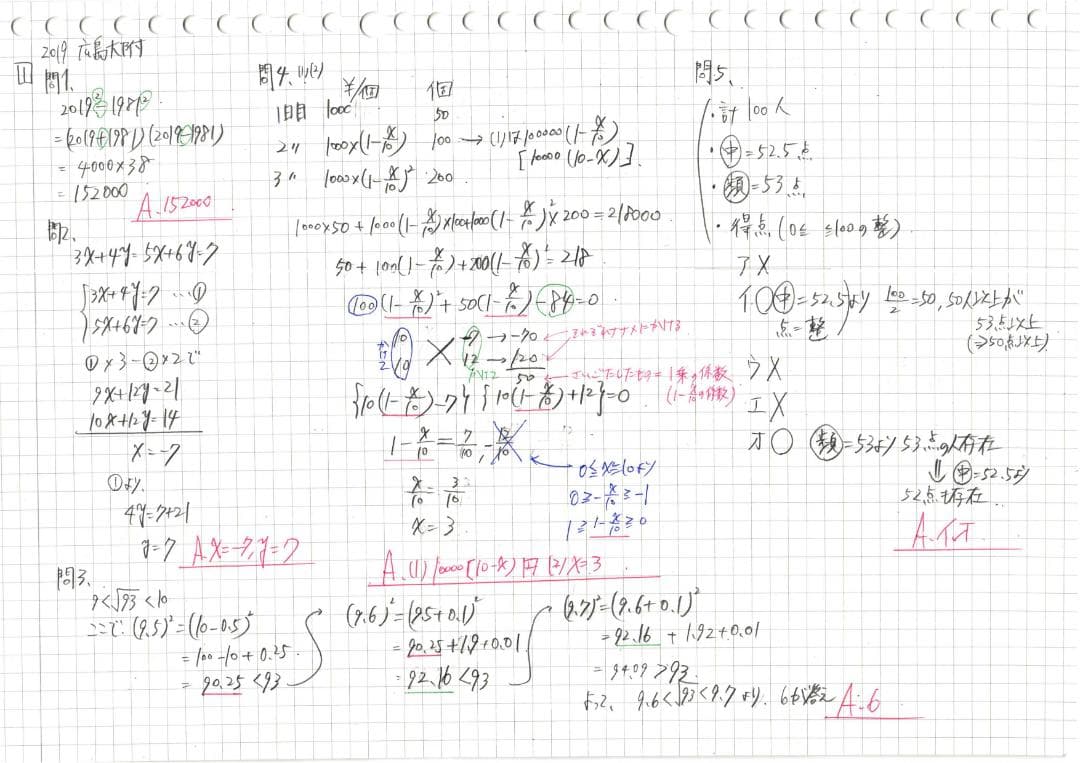 2019 広島大附
1
問1、
2019²－1981²
＝(2019＋1981)(2019－1981)
＝4000×38
＝152000
A.152000
問2、
3x＋4y＝5x＋6y＝7
{3x＋4y＝7 …①
5x＋6y＝7 …②
①×3－②×2で
9x＋12y＝21
10x＋12y＝14
x＝－7
①より、
4y＝7＋21
y＝7
A.x＝－7, y＝7
問3、
9<√93<10
ここで(9.5)²＝(10－0.5)²
＝100－10＋0.25
＝90.25<93
(9.6)²＝(9.5＋0.1)²
＝90.25＋1.9＋0.01
＝92.16<93
(9.7)²＝(9.6＋0.1)²
＝92.16＋1.92＋0.01
＝94.09>93
よって、9.6<√93<9.7より、6が答え
A.6
問4、(1)(2)
¥/個 個
1日目 1000 50
2〃 1000×(1－x/10) 100 → (1)は100000(1－x/10)
[10000(10－x)].
3〃 1000×(1－x/10)² 200
1000×50＋1000(1－x/10)×100＋1000(1－x/10)²×200＝218000
50＋100(1－x/10)＋200(1－x/10)²＝218
100(1－x/10)²＋50(1－x/10)－84＝0
かけて
10 －7 → －70 それぞれナナメにかける
10 12 → 120
かけて 50 さいごたしたもの＝1乗の係数
(1－x/10の係数)
{10(1－x/10)－7}{10(1－x/10)＋12}＝0
1－x/10＝7/10, －12/10
0≦x≦10より
x/10＝3/10
0≧－x/10≧－1
x＝3
1≧1－x/10≧0
A.(1)10000(10－x)円 (2)x＝3
問5、
・計100人
・中＝52.5点
・頻＝53点
・得点(0≦ ≦100の整)
ア×
イ○中＝52.5より 100/2＝50, 50人以上が
点＝整 53点以上
(≧50点以上)
ウ×
エ×
オ○ 頻＝53より53点の人存在
⇓ 中＝52.5より
52点も存在
A.イオ